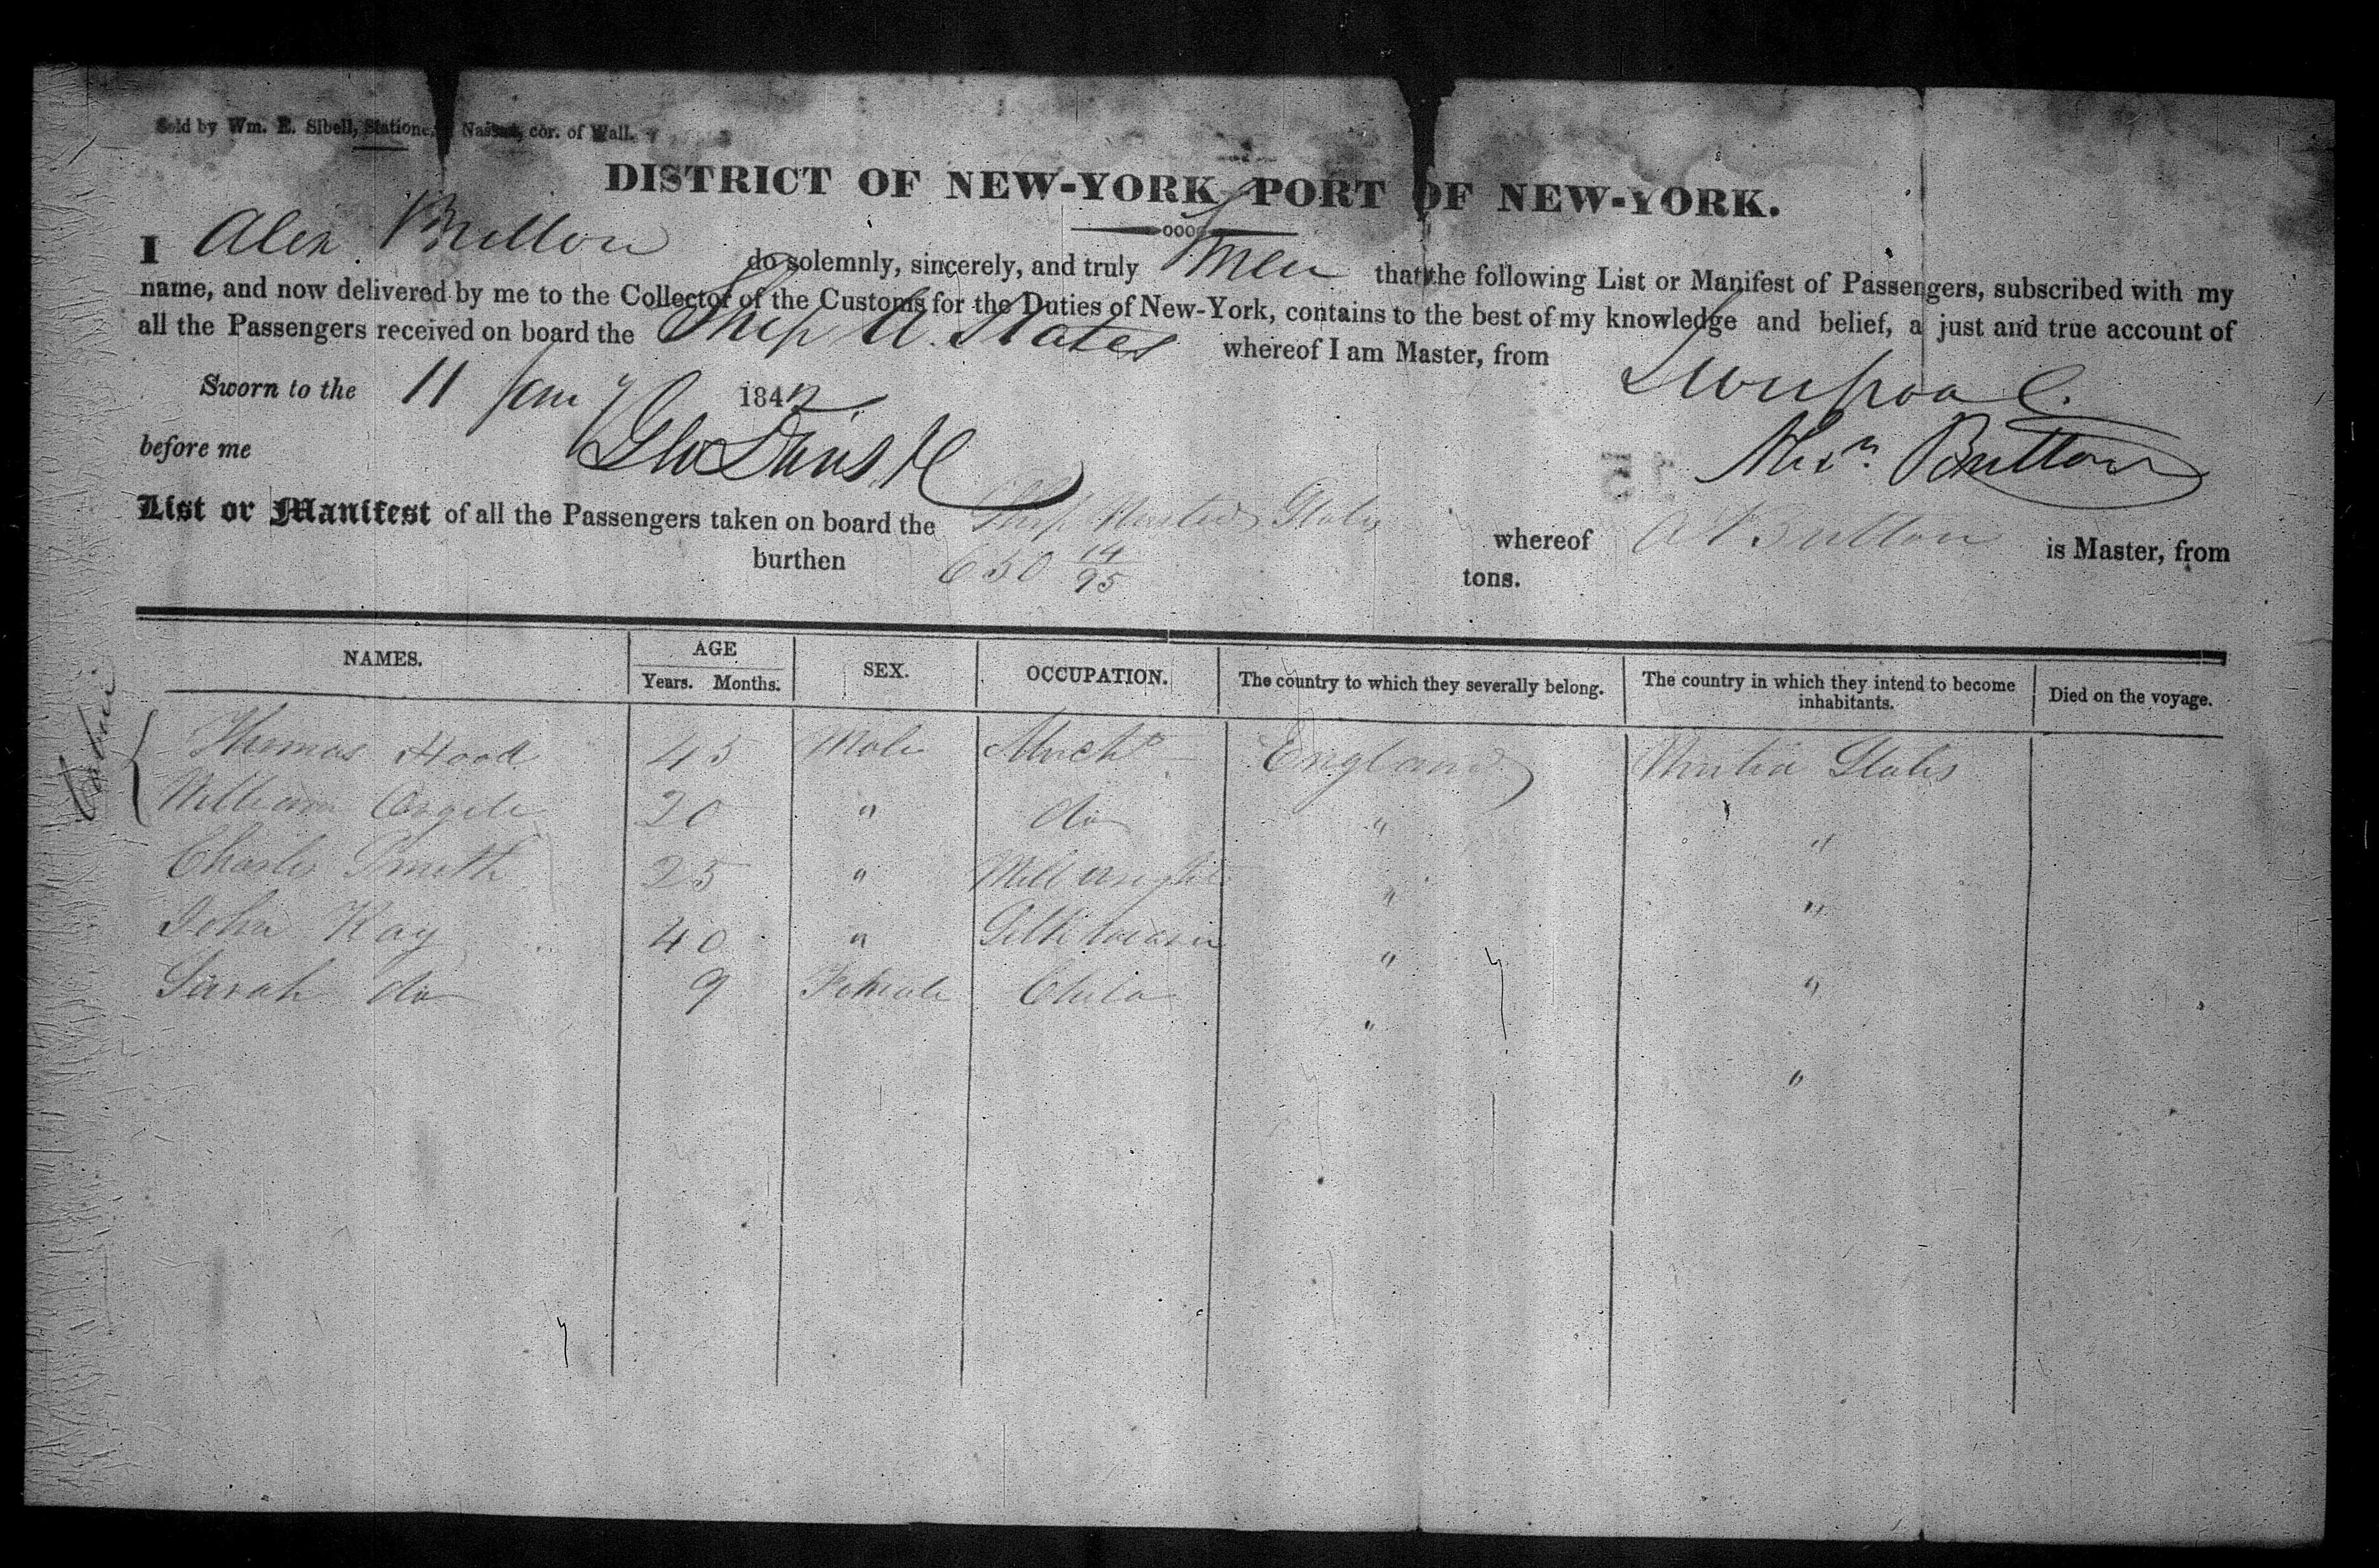 Sold by Wm. E. Sibell, Stationer, Nassau, cor. of Wall.
DISTRICT OF NEW-YORK PORT OF NEW-YORK.
I Alex Britton do solemnly, sincerely, and truly swear that the following List or Manifest of Passengers, subscribed with my
name, and now delivered by me to the Collector of the Customs for the Duties of New-York, contains to the best of my knowledge and belief, a just and true account of
all the Passengers received on board the Ship U. States whereof I am Master, from Liverpool.
Sworn to the 11 Jany 1842
before me Geo Davis Alexr. Britton
15
List or Manifest of all the Passengers taken on board the Ship United States whereof A Britton is Master, from
burthen 650 14/95 tons.
NAMES. AGE SEX. OCCUPATION. The country to which they severally belong. The country in which they intend to become inhabitants. Died on the voyage.
Years. Months.
Cabin
Thomas Hood 45 Male Mercht England United States
William 20 " do " "
Charles Smith 25 " Mill wright " "
John Kay 40 " Silk weaver " "
Sarah do 9 Female Child " "